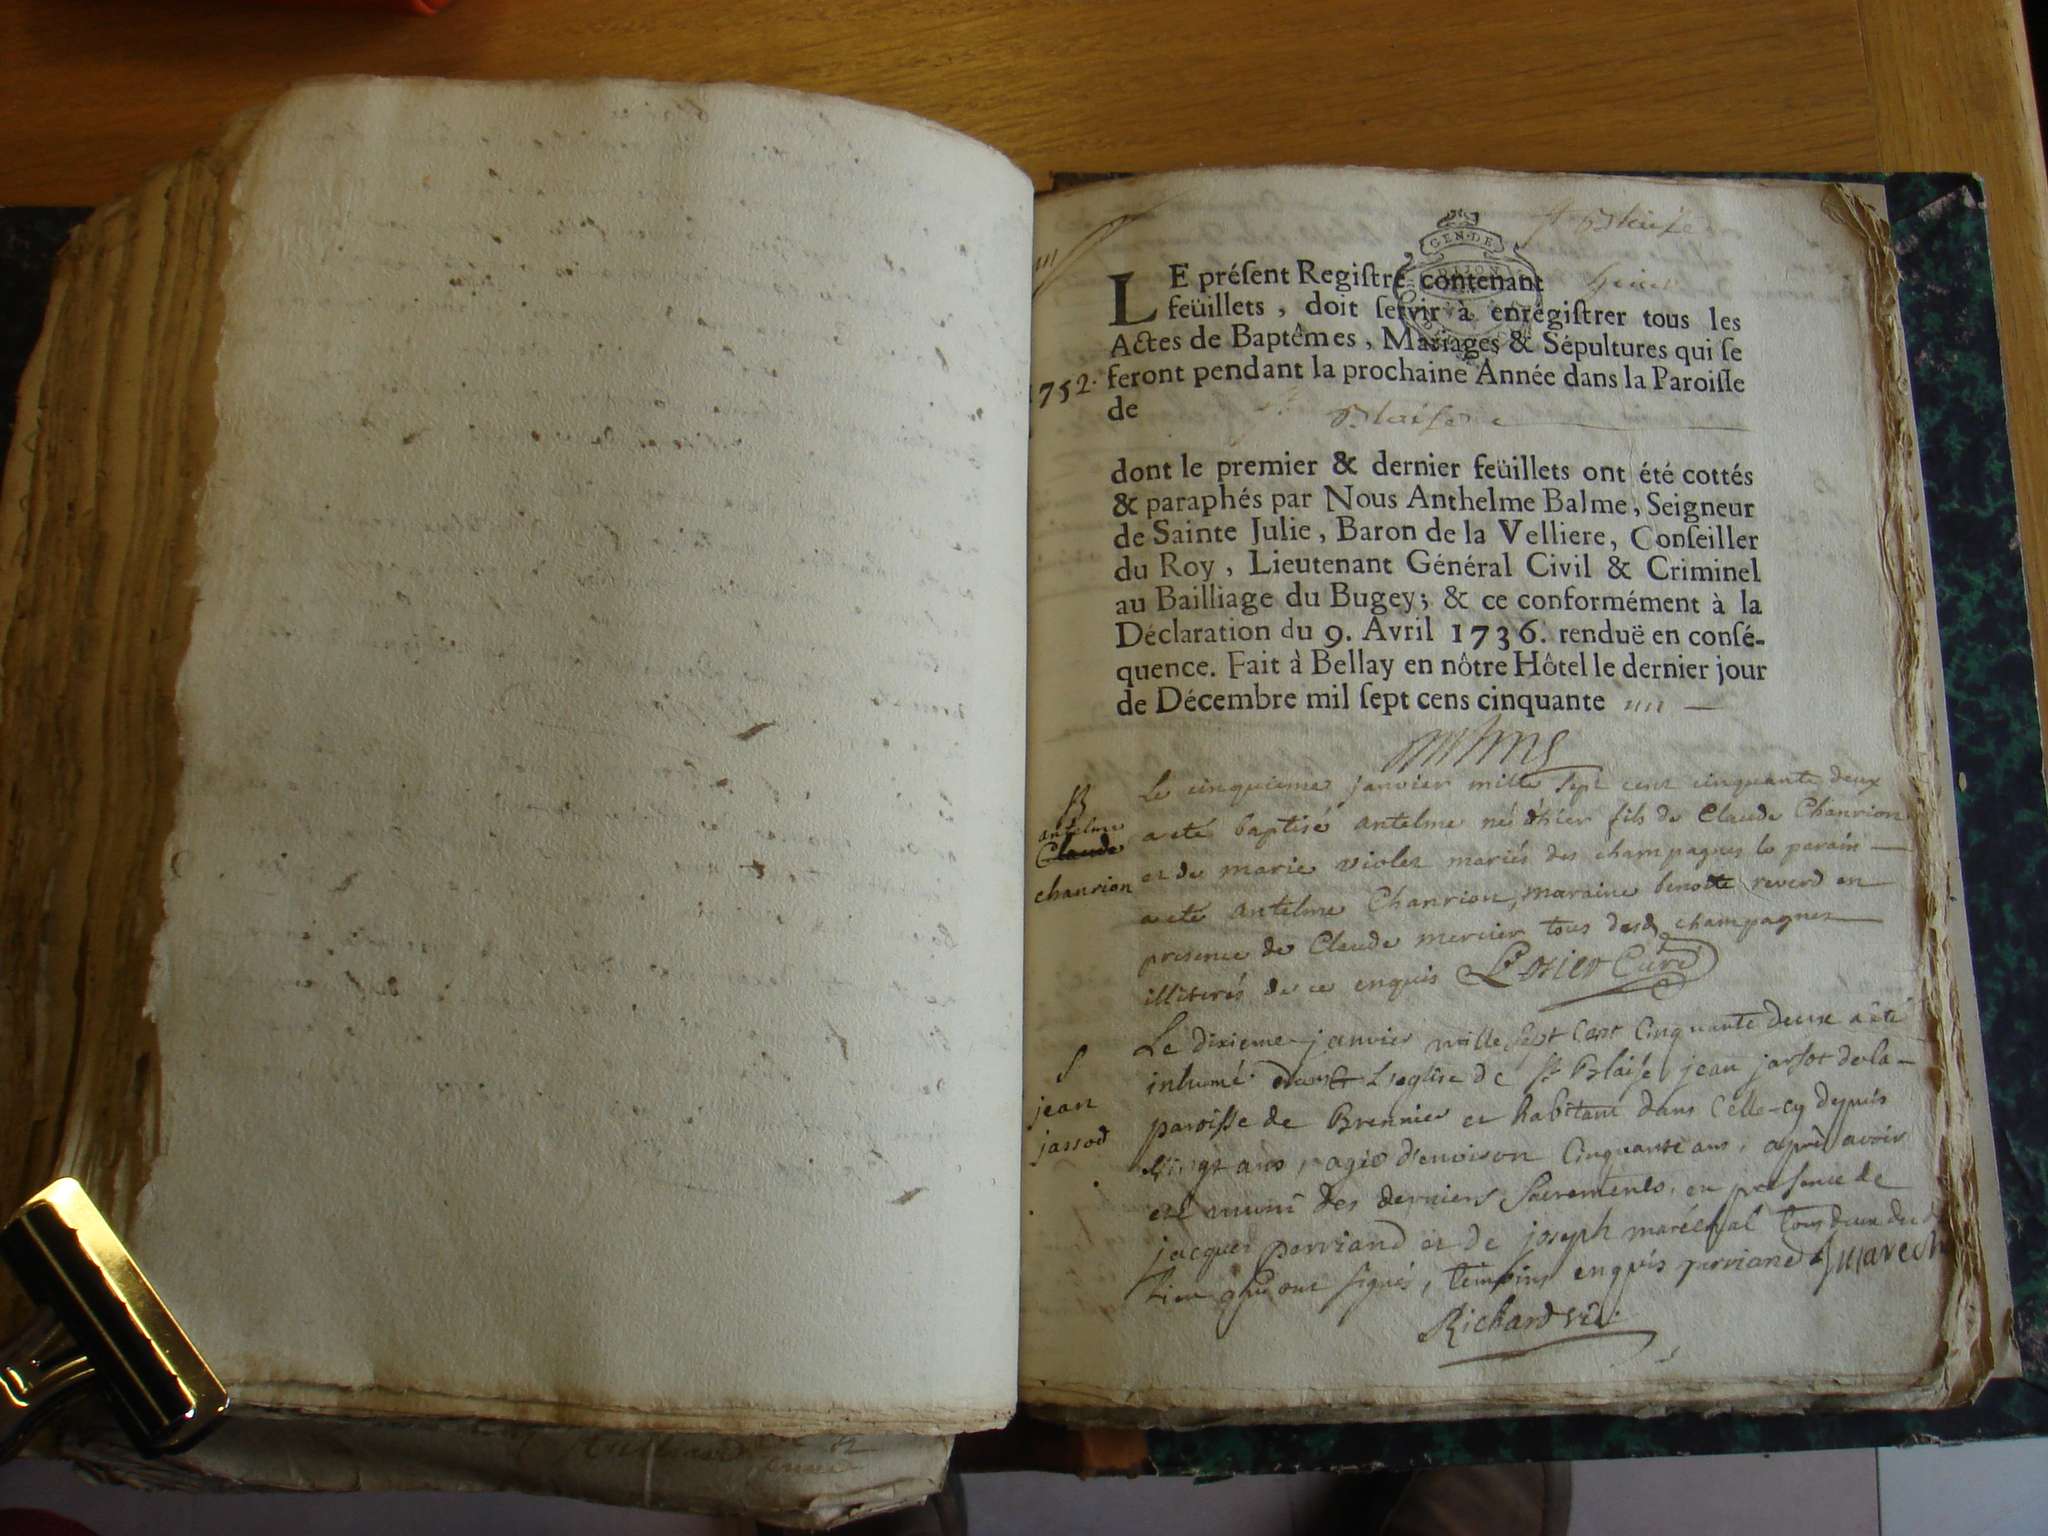 St Blaise
GEN·DE
DIJON
LE préſent Regiſtre contenant
feüillets, doit ſervir à enrégiſtrer tous les
Actes de Baptêmes, Mariages & Sépultures qui ſe
1752. feront pendant la prochaine Année dans la Paroiſſe
de St Blaise
dont le premier & dernier feüillets ont été cottés
& paraphés par Nous Anthelme Balme, Seigneur
de Sainte Julie, Baron de la Velliere, Conſeiller
du Roy, Lieutenant Général Civil & Criminel
au Bailliage du Bugey; & ce conformément à la
Déclaration du 9. Avril 1736. renduë en conſé-
quence. Fait à Bellay en nôtre Hôtel le dernier jour
de Décembre mil ſept cens cinquante un
B
antelme
Claude
chanrion
Le cinquieme janvier mille sept cent cinquante deux
a eté baptisé antelme né d'hier fils de Claude Chanrion
et de marie violet mariés des champagnes le parain
a eté antelme Chanrion, maraine benoite reverd en
presence de Claude mercier tous desd champagnes
illiterés de ce enquis Curé
S
jean
jassod
Le dixieme janvier mille sept cent cinquante deux a été
inhumé dans L'eglise de St Blaise jean jassot de la
paroisse de Brennier et habitant dans celle-cy depuis
vingt ans, agé d'environ cinquante ans, après avoir
eté muni des derniers Sacrements, en presence de
jacques perriand et de joseph maréchal tous deux dud
lieu qui ont signés, témoins enquis perriand J marech
Richard vic: